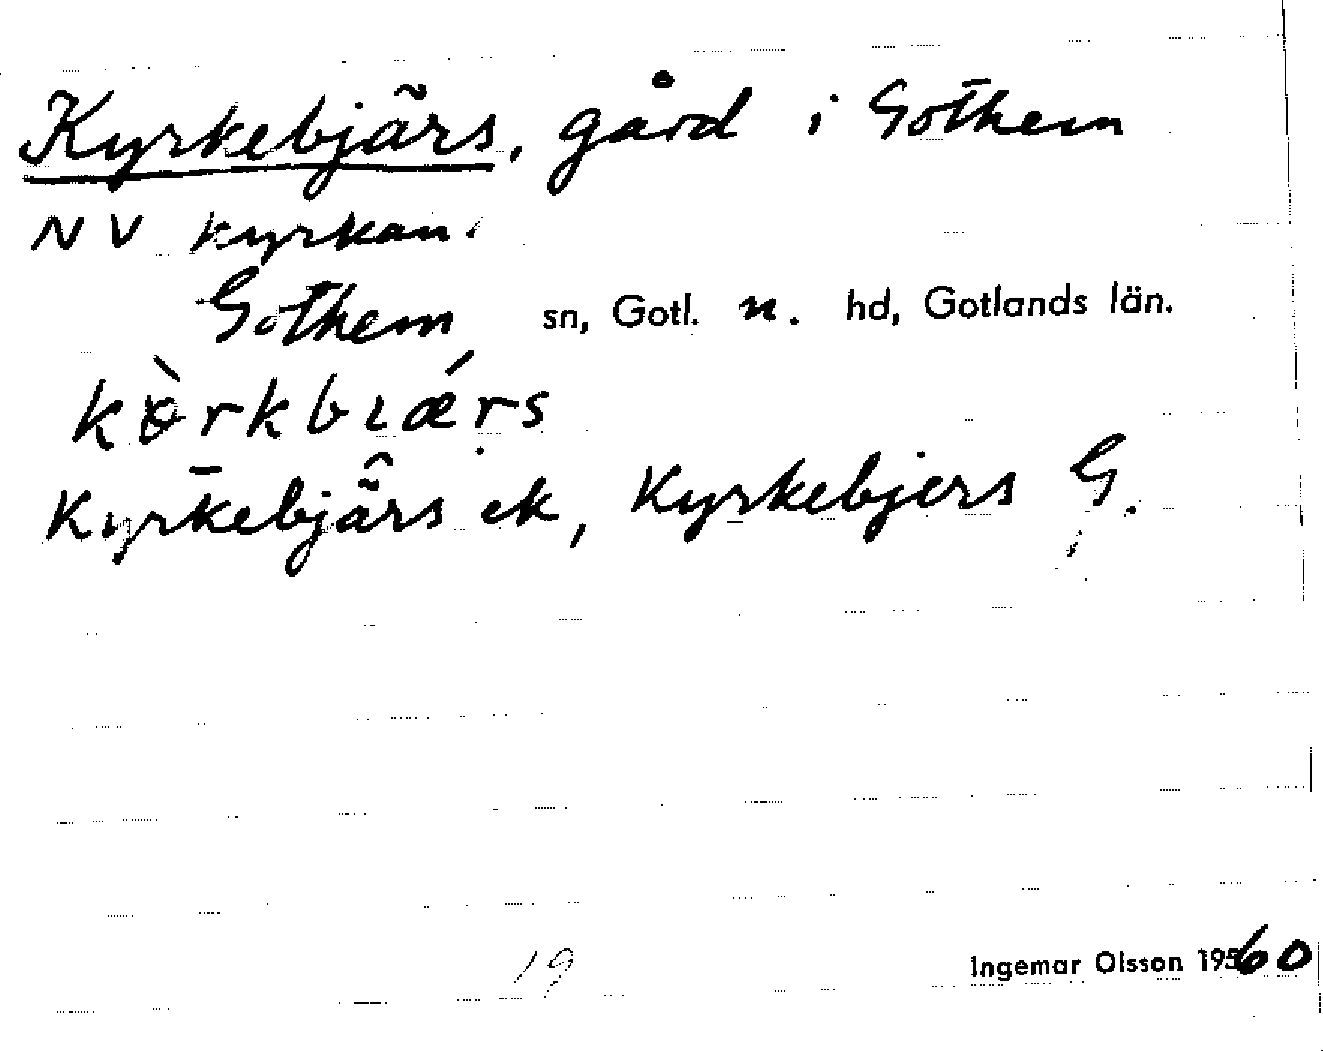 Kyrkebjärs, gård i Gothem
NV kyrkan.
Gothem sn, Gotl. n. hd, Gotlands län.
kòrkbıǽrs
Kyrkebjärs ek, Kyrkebjers G.
19
Ingemar Olsson 1960